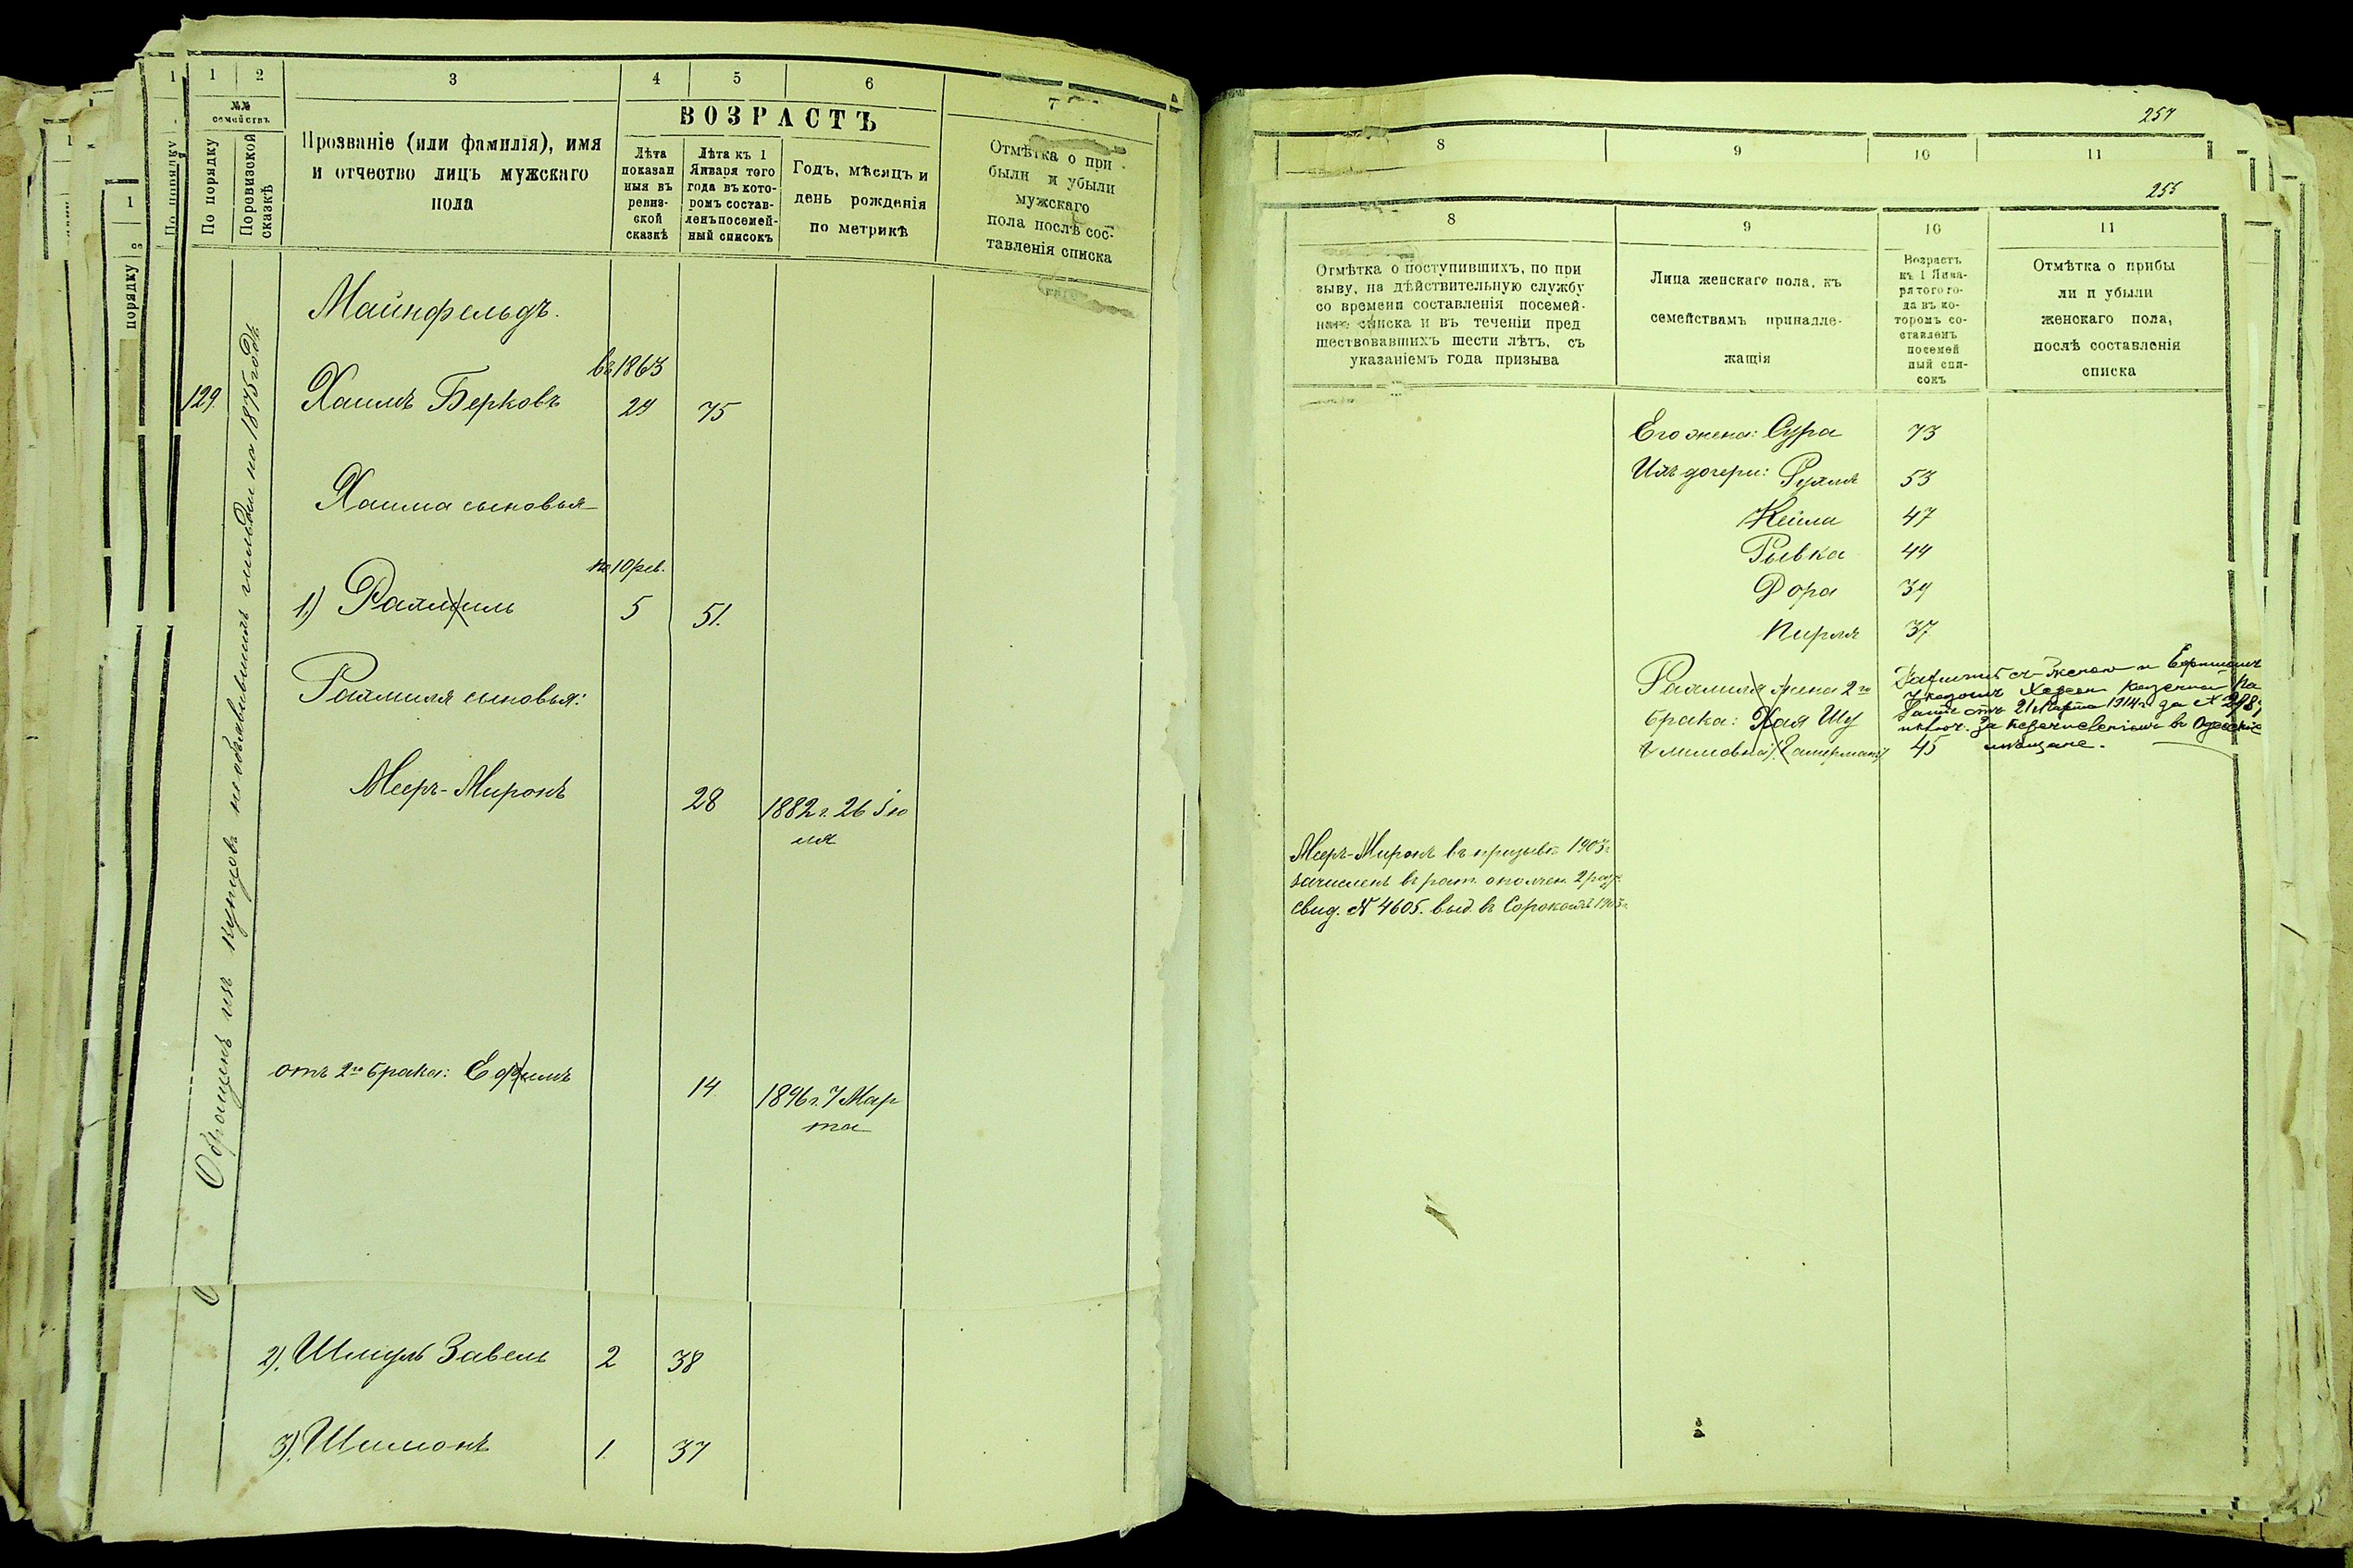 1 2 3 4 5 6 7
№№ семействъ
По порядку
Поревизской сказкѣ
Прозваніе (или фамилія), имя
и отчество лицъ мужскаго
пола
ВОЗРАСТЪ
Лѣта
показан
ныя въ
ревиз-
ской
сказкѣ
Лѣта къ 1
Января того
года въ кото-
ромъ состав-
ленъ посемей-
ный списокъ
Годъ, мѣсяцъ и
день рожденія
по метрикѣ
Отмѣтка о при
были и убыли
мужскаго
пола послѣ сос-
тавленія списка
Обращенъ изъ купцовъ не объявившихъ на 1875 годъ
Майнфельдъ.
въ 1863
129. Хаимъ Берковъ 24 75
Хаима сыновья
по 10 рев.
1) Рахмиль 5 51.
Рахмиля сыновья:
Мееръ-Миронъ 28 1882 г. 26 Ію
ля
отъ 2го брака: Ефимъ 14 1896 г. 7 Мар
та
2). Шмуль Завель 2 38
3). Шимонъ 1. 37
257
8 9 10 11
255
8 9 10 11
Отмѣтка о поступившихъ, по при
зыву, на дѣйствительную службу
со времени составленія посемей-
наго списка и въ теченіи пред
шествовавшихъ шести лѣтъ, съ
указаніемъ года призыва
Лица женскаго пола, къ
семействамъ принадле-
жащія
Возрастъ
къ 1 Янва-
ря того го-
да въ ко-
торомъ со-
ставленъ
посемей
ный спи-
сокъ
Отмѣтка о прибы
ли и убыли
женскаго пола,
послѣ составленія
списка
Его жена: Сура 73
Ихъ дочери: Рухля 53
Кейла 47
Рывка 44
Дора 39
Пирля 37
Рахмиля жена 2го
брака: Хая Шу
лимовна 45
Рахмиль съ женою и Ефимомъ
Указомъ Херсон Казенной Па
латы отъ 21 Марта 1914 г. за №
исключ. за перечисленіемъ въ Одесскіе
мѣщане.
Мееръ-Миронъ въ призывъ 1903 г.
зачисленъ въ рат. ополчен. 2 разр.
свид. № 4605. выд. въ Сорокахъ 1903 г.